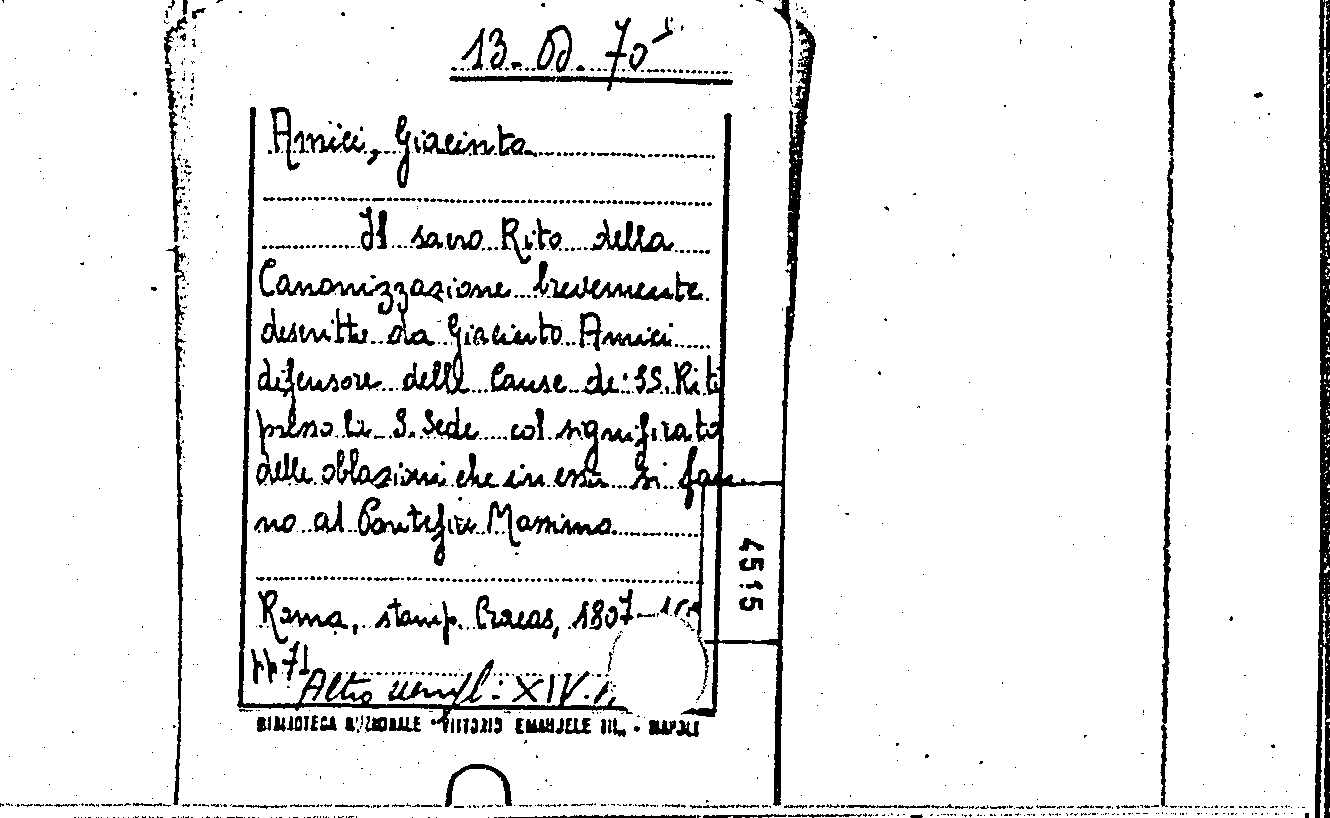 13. 70
Amici, Giacinto
Il sacro Rito della
Canonizzazione brevemente
descritto da Giacinto Amici
difensore delle Cause de' SS. Riti
presso la S. Sede col significato
delle oblazioni che in essa si fan
no al Pontefice Massimo
4515
Roma, stamp. Cracas, 1807
pp 71
Altro XIV.
BIBLIOTECA NAZIONALE - VITTORIO EMANUELE III. - NAPOLI